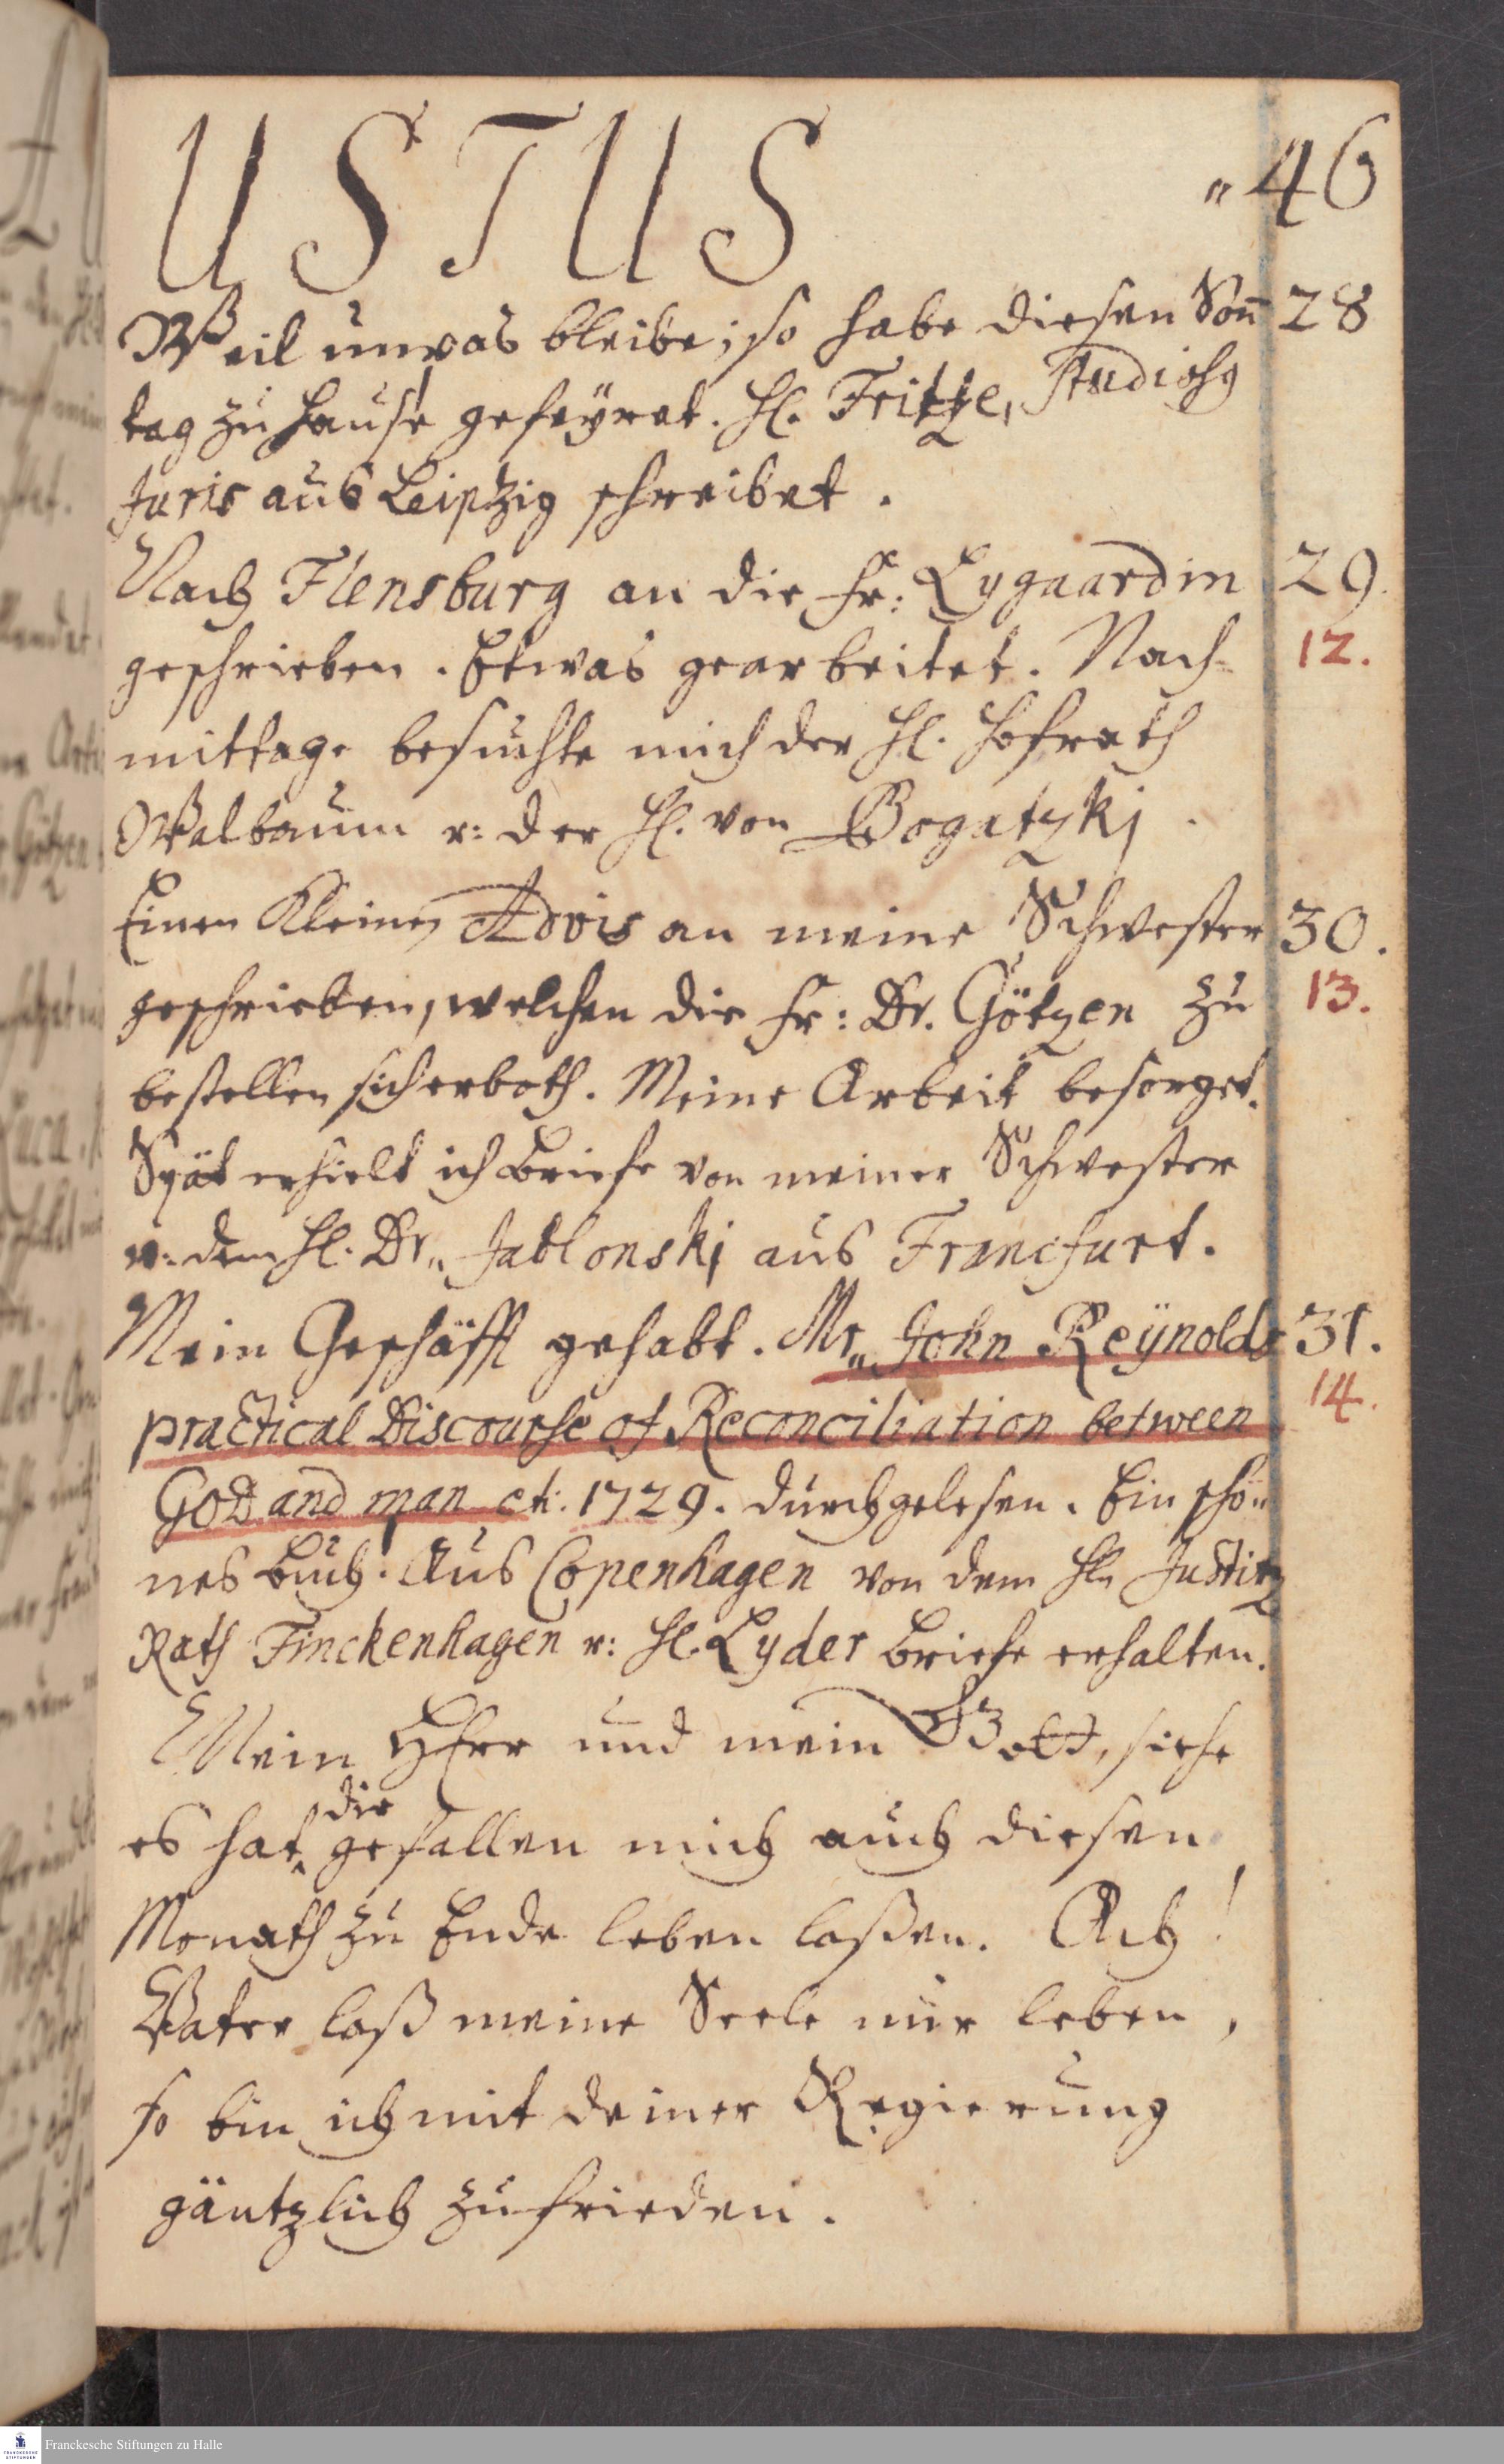 USTUS "46
Weil unpas bleibe; so habe diesen Soñ 28
tag zu Hause gefeyret. Hl. Fritze, Studiosg
Juris aus Leipzig schreibet.
Nach Flensburg an die Fr: Lygaardin 29.
geschrieben. Etwas gearbeitet. Nach= 12.
mittage besuchte mich der Hl. Hofrath
Walbaum u: der Hl. von Bogatzkj.
Einen kleinen Advis an meine Schwester 30.
geschrieben, welchen die Fr: Dr. Götzen zu 13.
bestellen sich erboth. Meine Arbeit besorget.
Spät erhielt ich Briefe von meiner Schwester
u: dem Hl. Dr„ Jablonskj aus Francfurt.
Mein Geschäfft gehabt. Mr„ John Reÿnolds 31.
practical Discourse of Reconciliation between 14.
GOD and man etc: 1729. durchgelesen. Ein schö„
nes Buch. Aus Copenhagen von dem Hln Justitz
Rath Finckenhagen u: Hl. Lyder Briefe erhalten.
Mein HErr und mein GOtt, siehe
es hat dir gefallen mich auch diesen
Monath zu Ende leben laßen. Ach!
Vater laß meine Seele nur leben,
so bin ich mit deiner Regierung
gäntzlich zufrieden.
Franckesche Stiftungen zu Halle